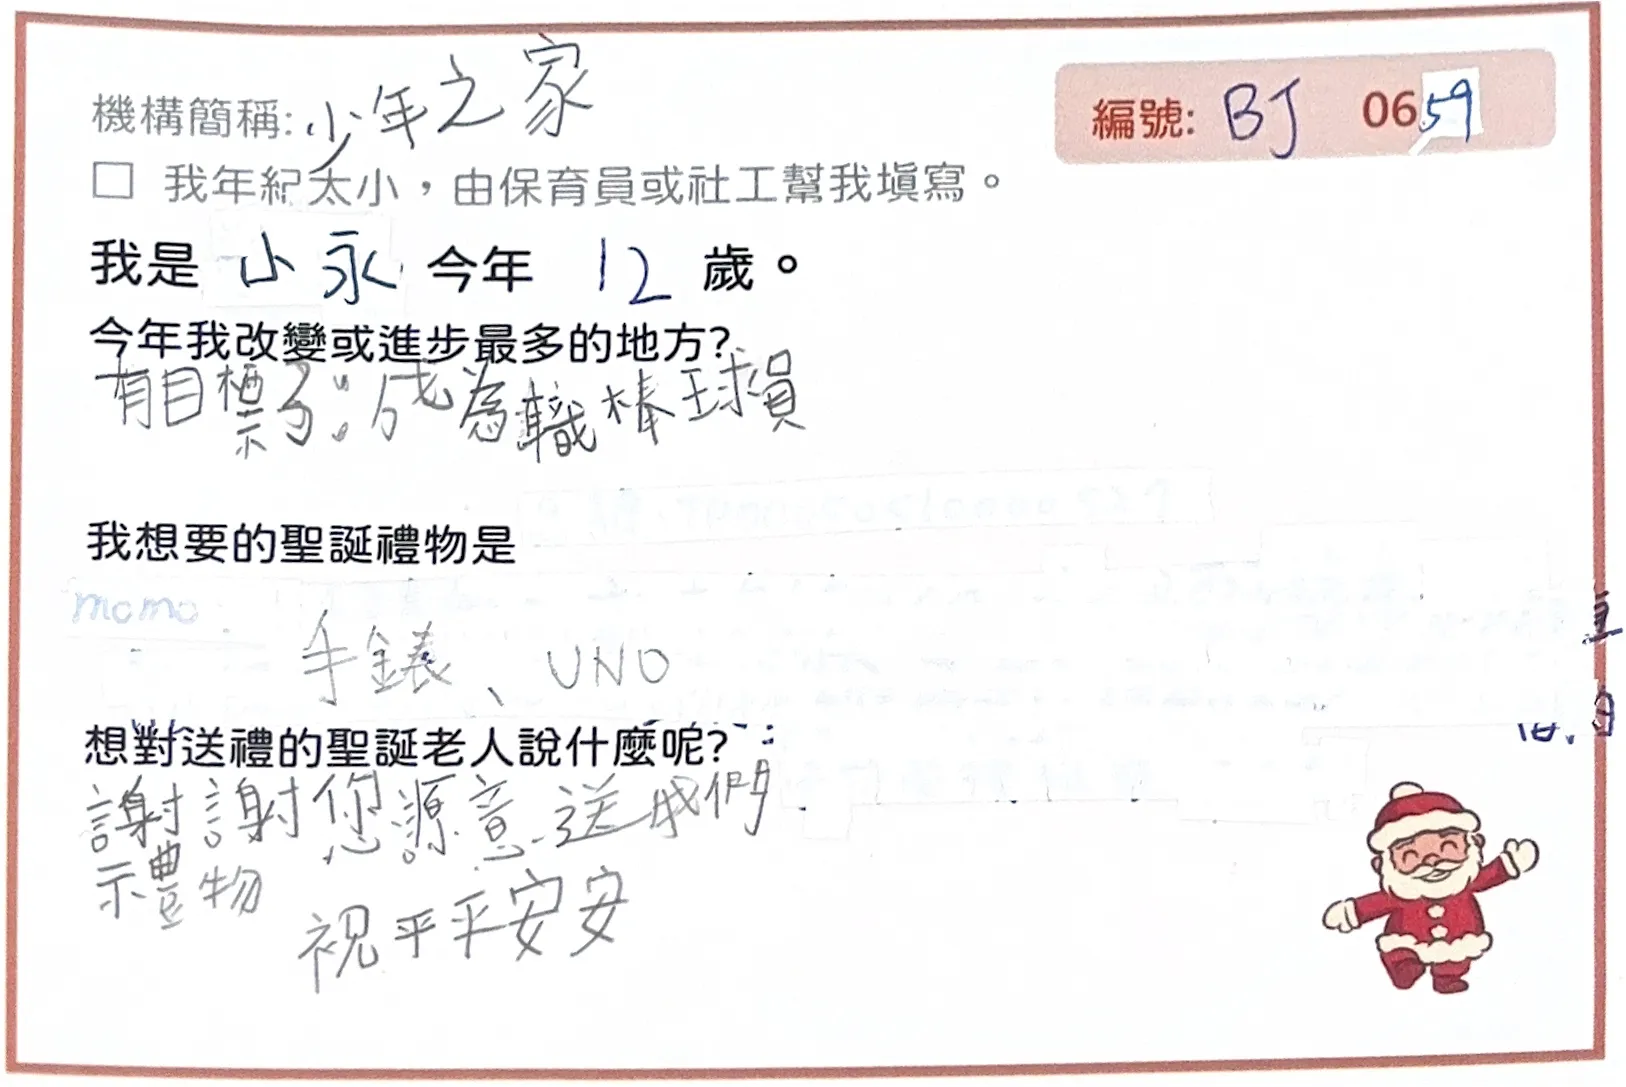 機構簡稱: 少年之家
編號: BJ 0659
□ 我年紀太小，由保育員或社工幫我填寫。
我是 小永 今年 12 歲。
今年我改變或進步最多的地方?
有目標了:成為職棒球員
我想要的聖誕禮物是
momo
手錶、UNO
想對送禮的聖誕老人說什麼呢?
謝謝您源意送我們
禮物
祝平平安安